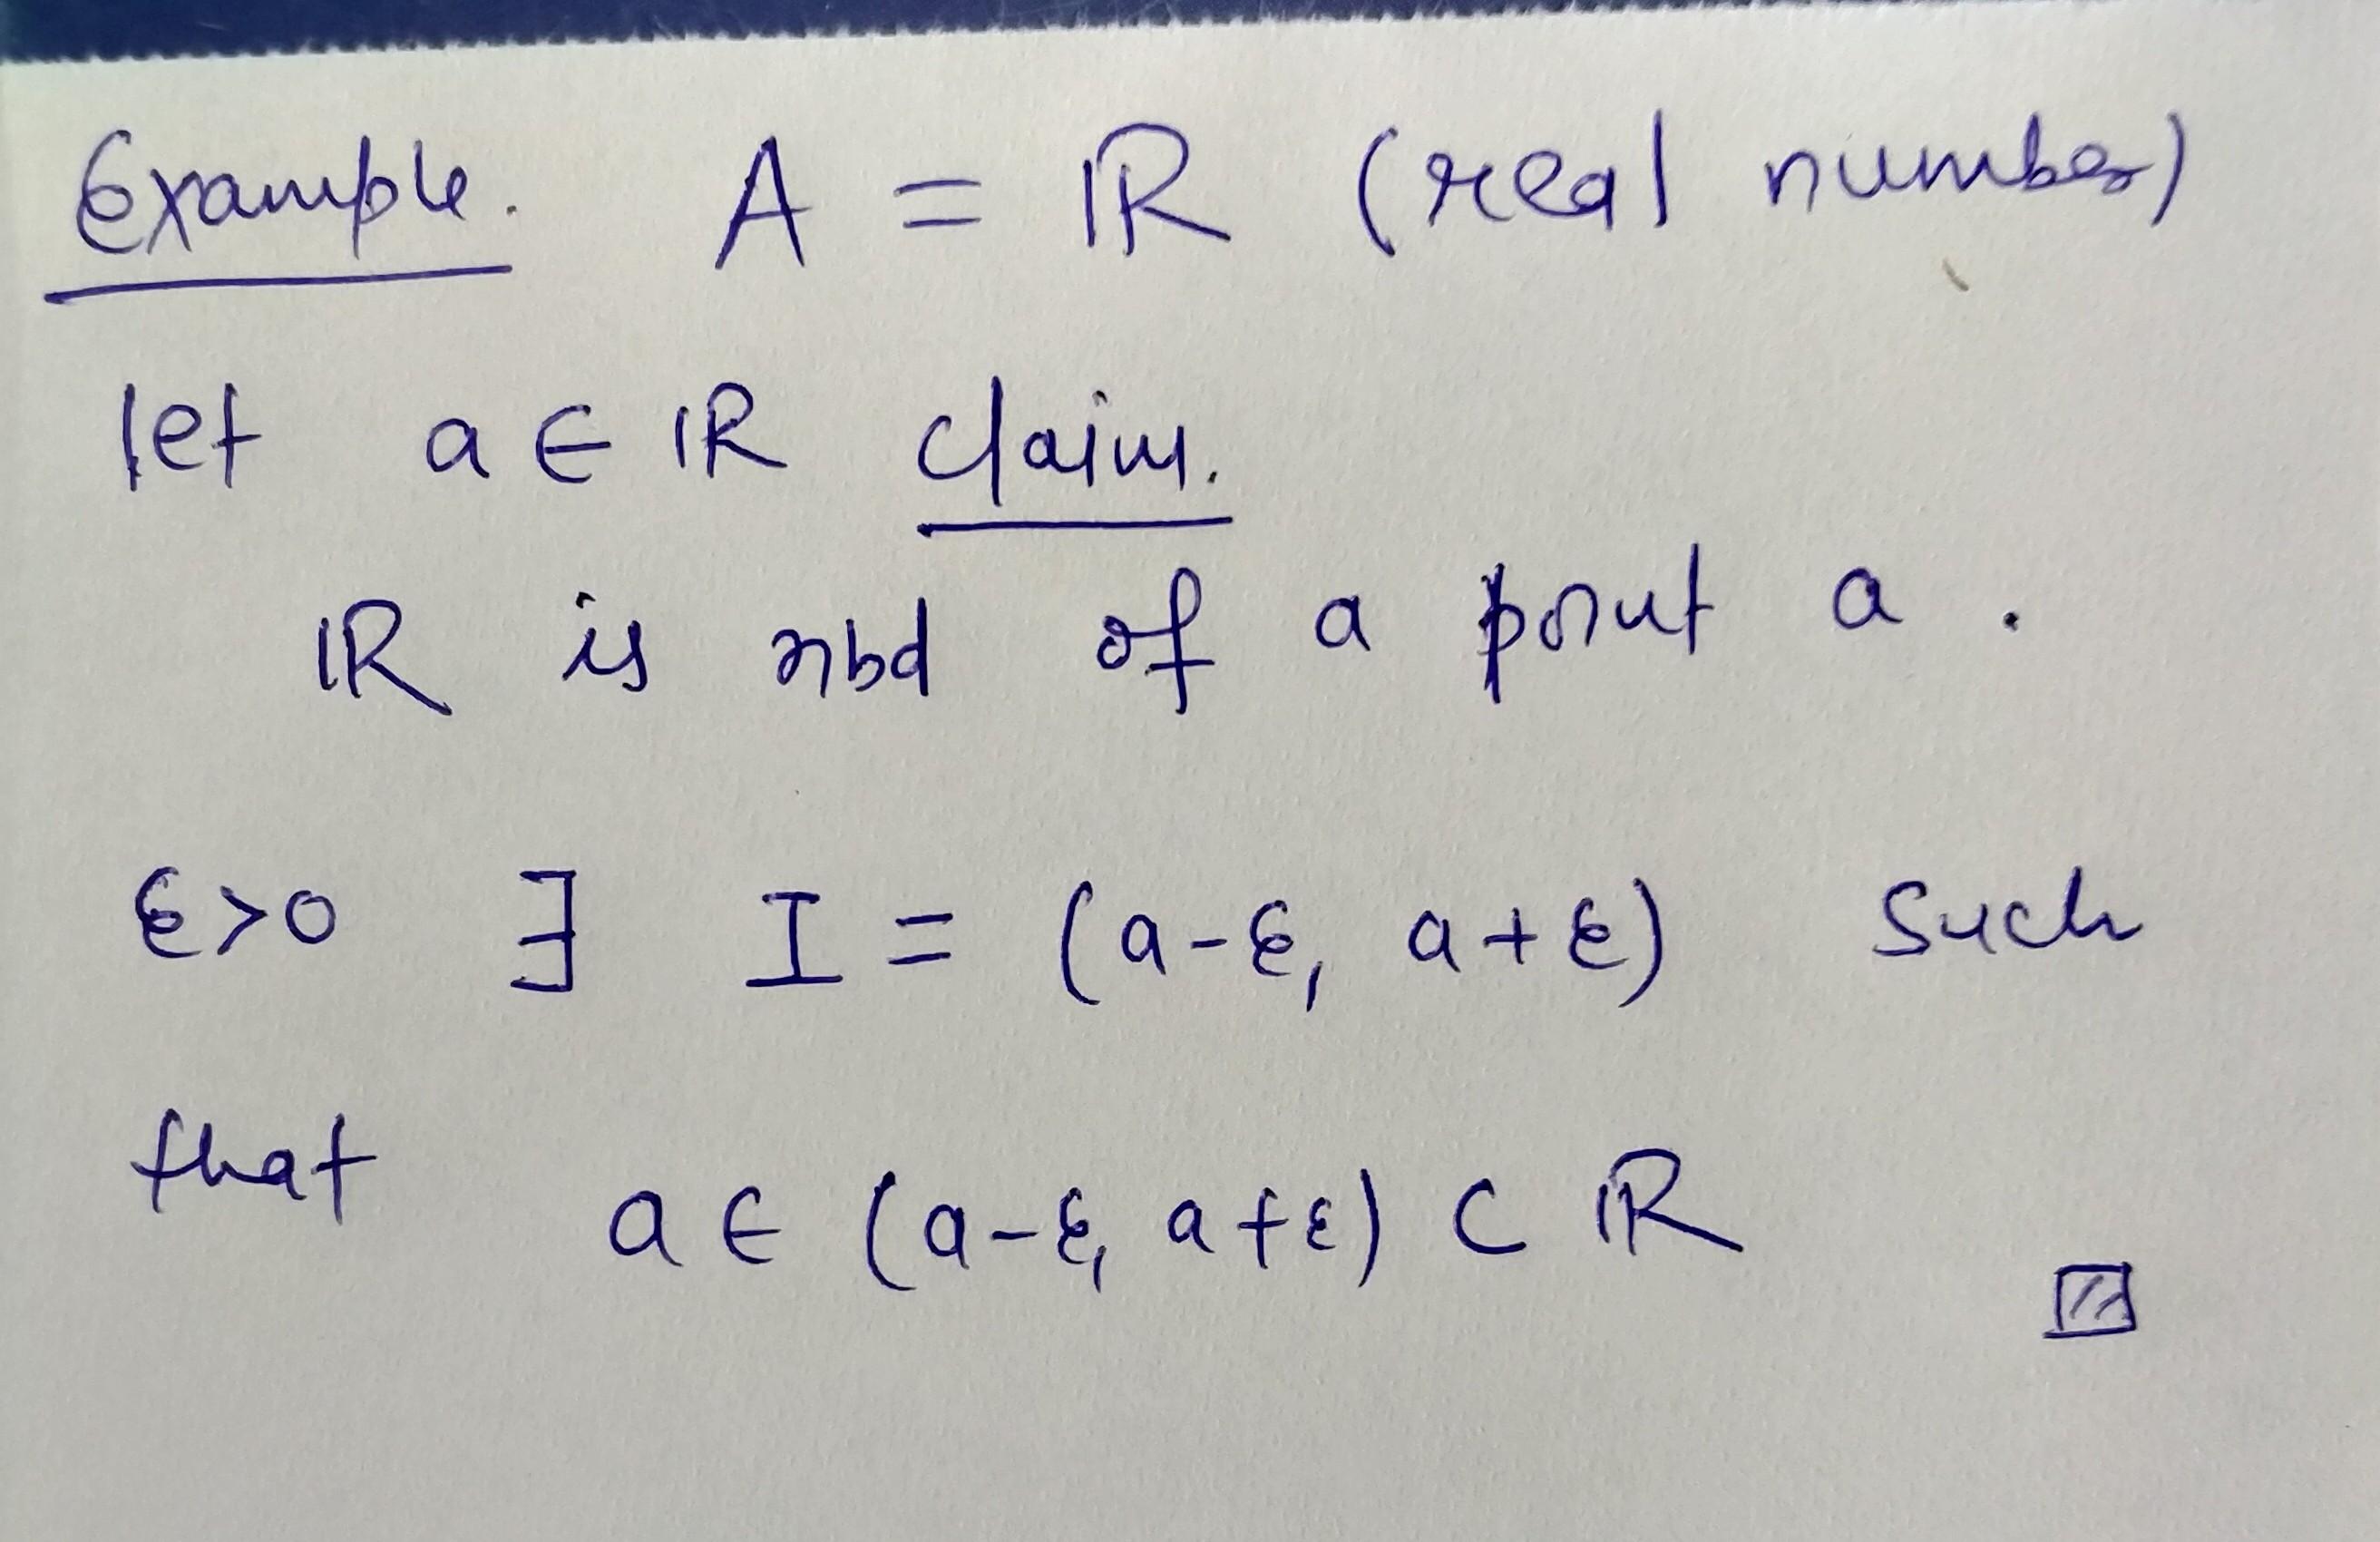 Example. A = ℝ (real number)
let a ∈ ℝ claim.
ℝ is nbd of a point a .
ε>0 ∃ I = (a-ε, a+ε) such
that a ∈ (a-ε, a+ε) ⊂ ℝ